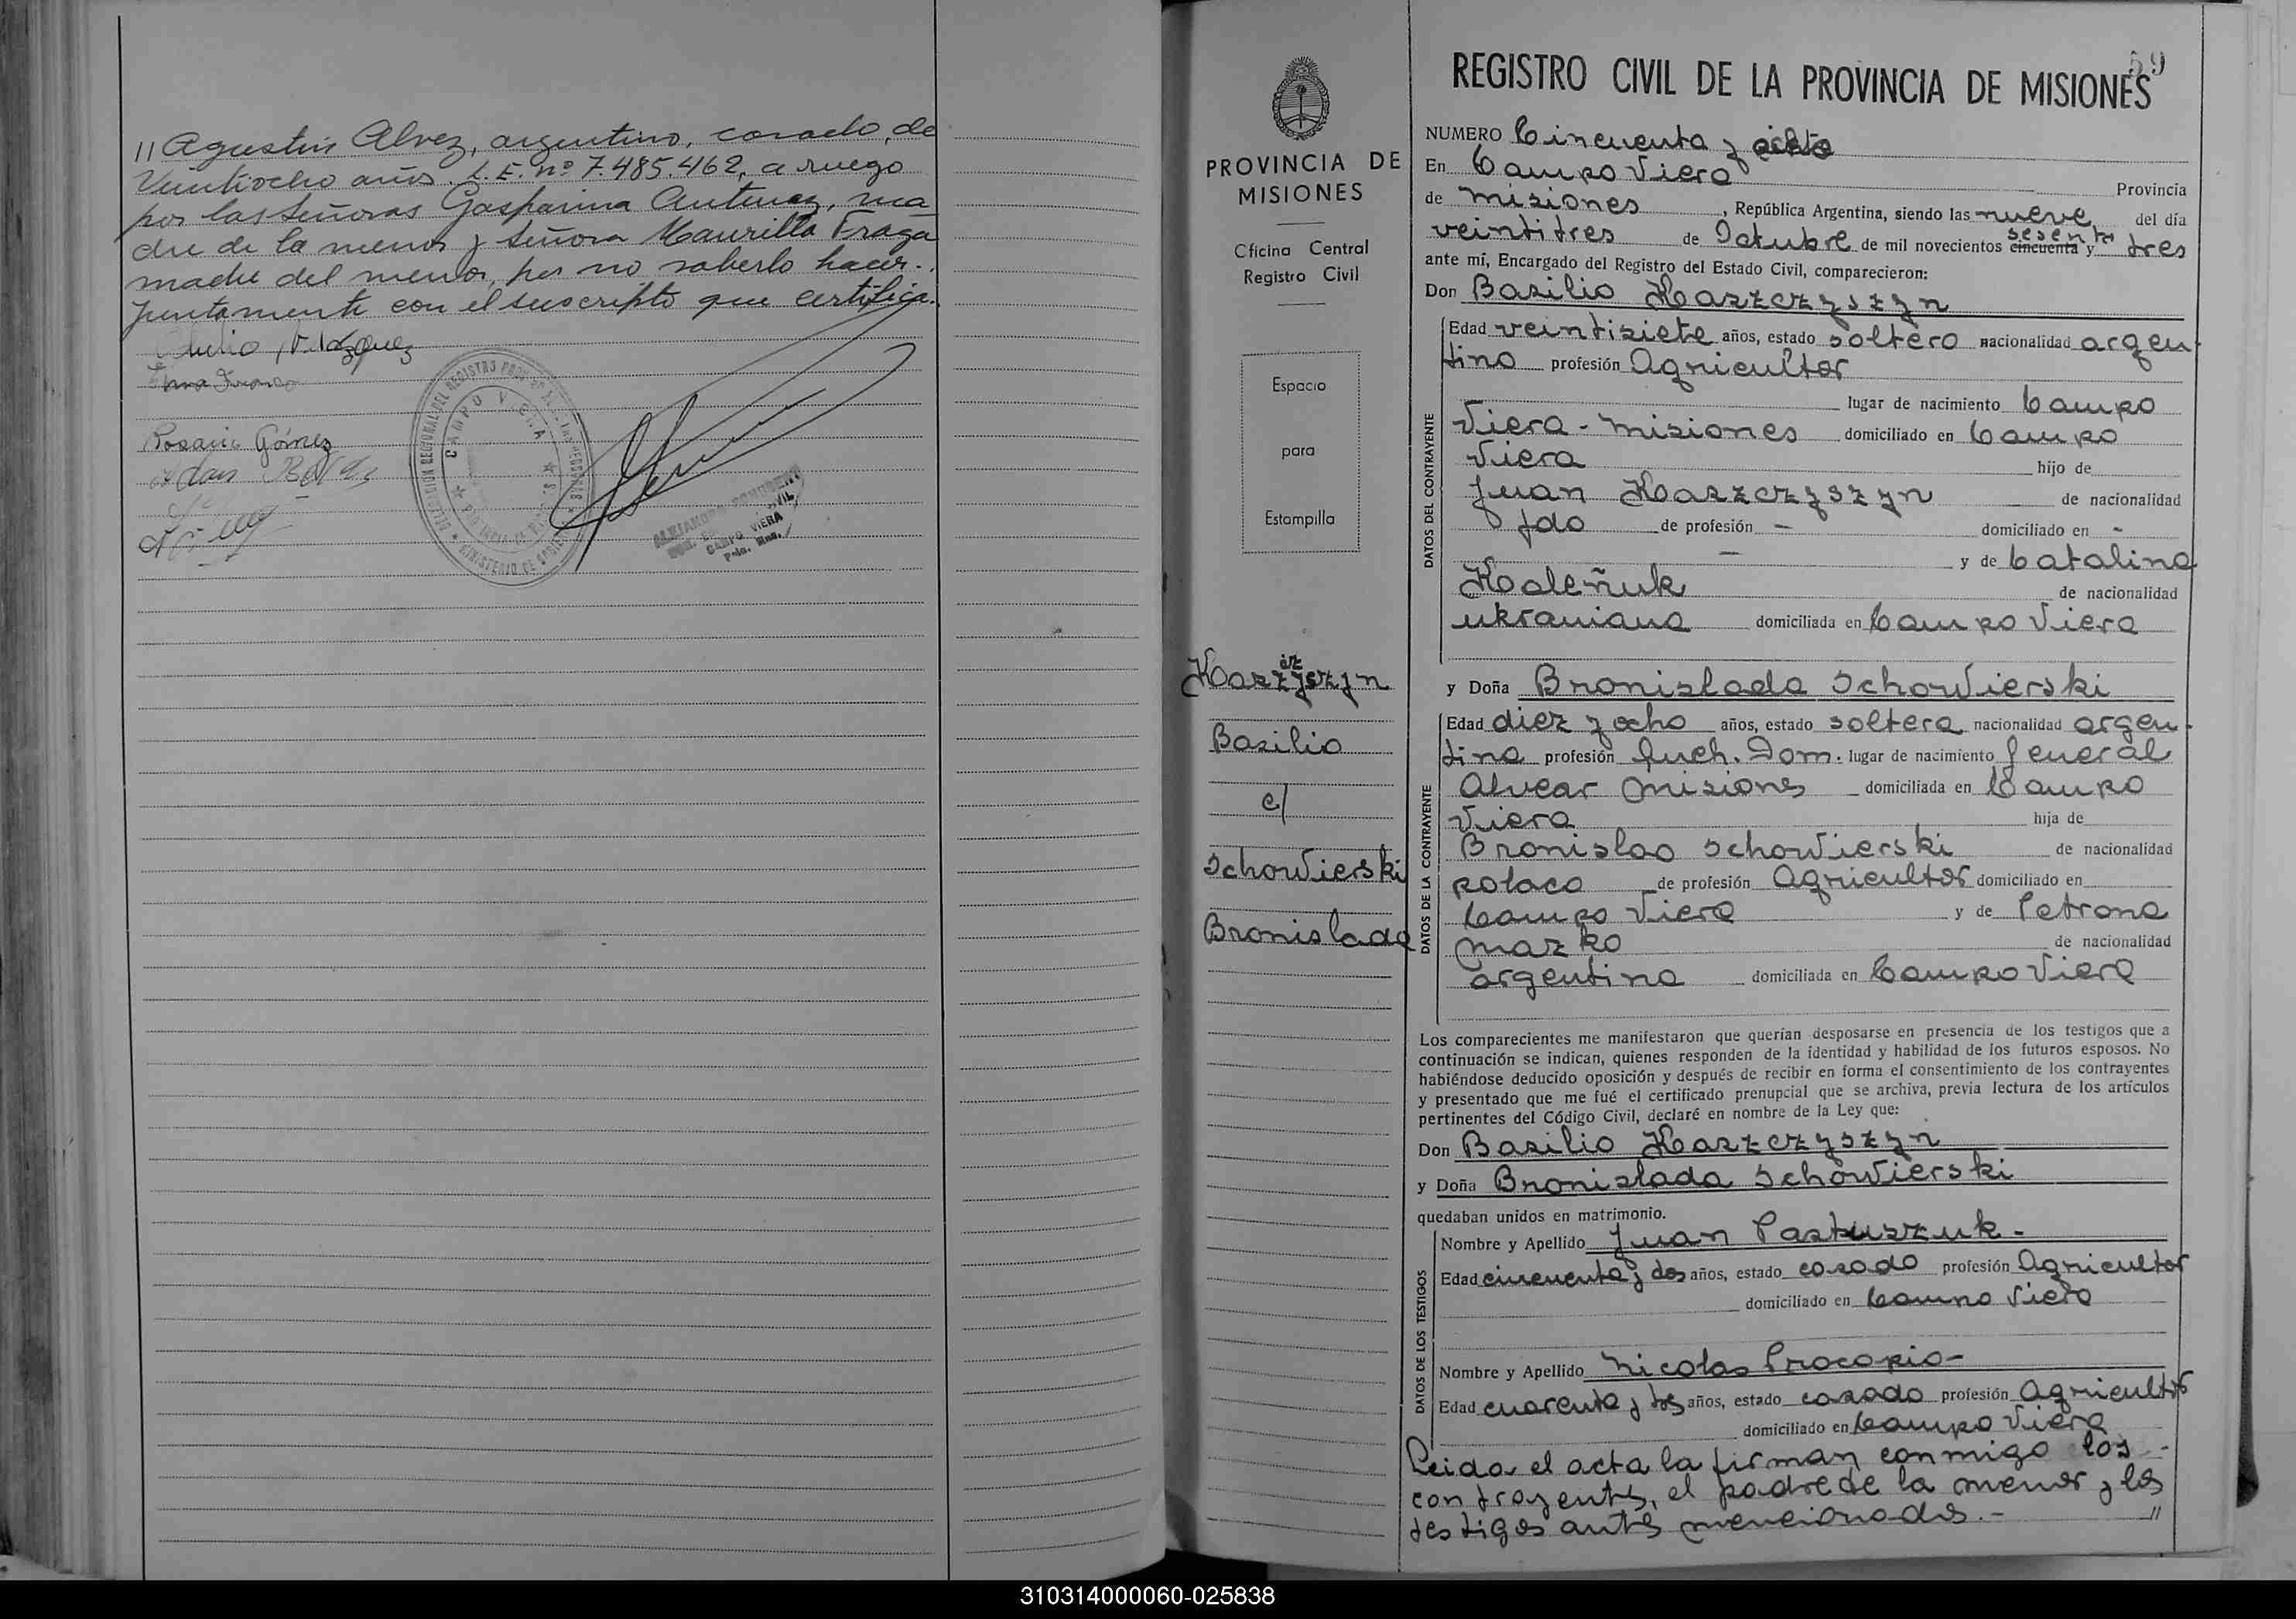 // Agustín Alvez, argentino, casado, de
Veintiocho años L.E. nº 7.485.462, a ruego
por las Señoras Gasparina Antunez, ma
dre de la menor y Señora Maurilia Fraga
madre del menor, por no saberlo hacer.-
Juntamente con el suscripto que certifica.
Rosario Gómez
CAMPO VIERA
59
REGISTRO CIVIL DE LA PROVINCIA DE MISIONES
PROVINCIA DE
MISIONES
Oficina Central
Registro Civil
Espacio
para
Estampilla
Kaszczyszyn
Basilio
c/
Schowierski
Bronislada
NUMERO Cincuenta y ocho
En Campo Viera Provincia
de Misiones, República Argentina, siendo las nueve del día
veintitres de Octubre de mil novecientos cincuenta sesenta y tres
ante mí, Encargado del Registro del Estado Civil, comparecieron:
Don Basilio Kaszczyszyn
DATOS DEL CONTRAYENTE
Edad veintisiete años, estado soltero nacionalidad argen
tino profesión Agricultor
lugar de nacimiento Campo
Viera - Misiones domiciliado en Campo
Viera hijo de
Juan Kaszczyszyn de nacionalidad
fdo de profesión — domiciliado en -
— y de Catalina
Koleñuk de nacionalidad
ukraniana domiciliada en Campo Viera
y Doña Bronislada Schowierski
DATOS DE LA CONTRAYENTE
Edad diez y ocho años, estado soltera nacionalidad argen-
tina profesión Queh. Dom. lugar de nacimiento General
Alvear Misiones domiciliada en Campo
Viera hija de
Bronislao Schowierski de nacionalidad
polaco de profesión Agricultor domiciliado en
Campo Viera y de Petrona
Mazko de nacionalidad
argentina domiciliada en Campo Viera
Los comparecientes me manifestaron que querían desposarse en presencia de los testigos que a
continuación se indican, quienes responden de la identidad y habilidad de los futuros esposos. No
habiéndose deducido oposición y después de recibir en forma el consentimiento de los contrayentes
y presentado que me fué el certificado prenupcial que se archiva, previa lectura de los artículos
pertinentes del Código Civil, declaré en nombre de la Ley que:
Don Basilio Kaszczyszyn
y Doña Bronislada Schowierski
quedaban unidos en matrimonio.
DATOS DE LOS TESTIGOS
Nombre y Apellido Juan Pastuszuk.-
Edad cincuenta y dos años, estado casado profesión Agricultor
domiciliado en Campo Viera
Nombre y Apellido Nicolas Procopio-
Edad cuarenta y dos años, estado casado profesión Agricultor
domiciliado en Campo Viera
Leida el acta la firman conmigo los -
contrayentes, el padre de la menor y los
testigos antes mencionados.- //
310314000060-025838